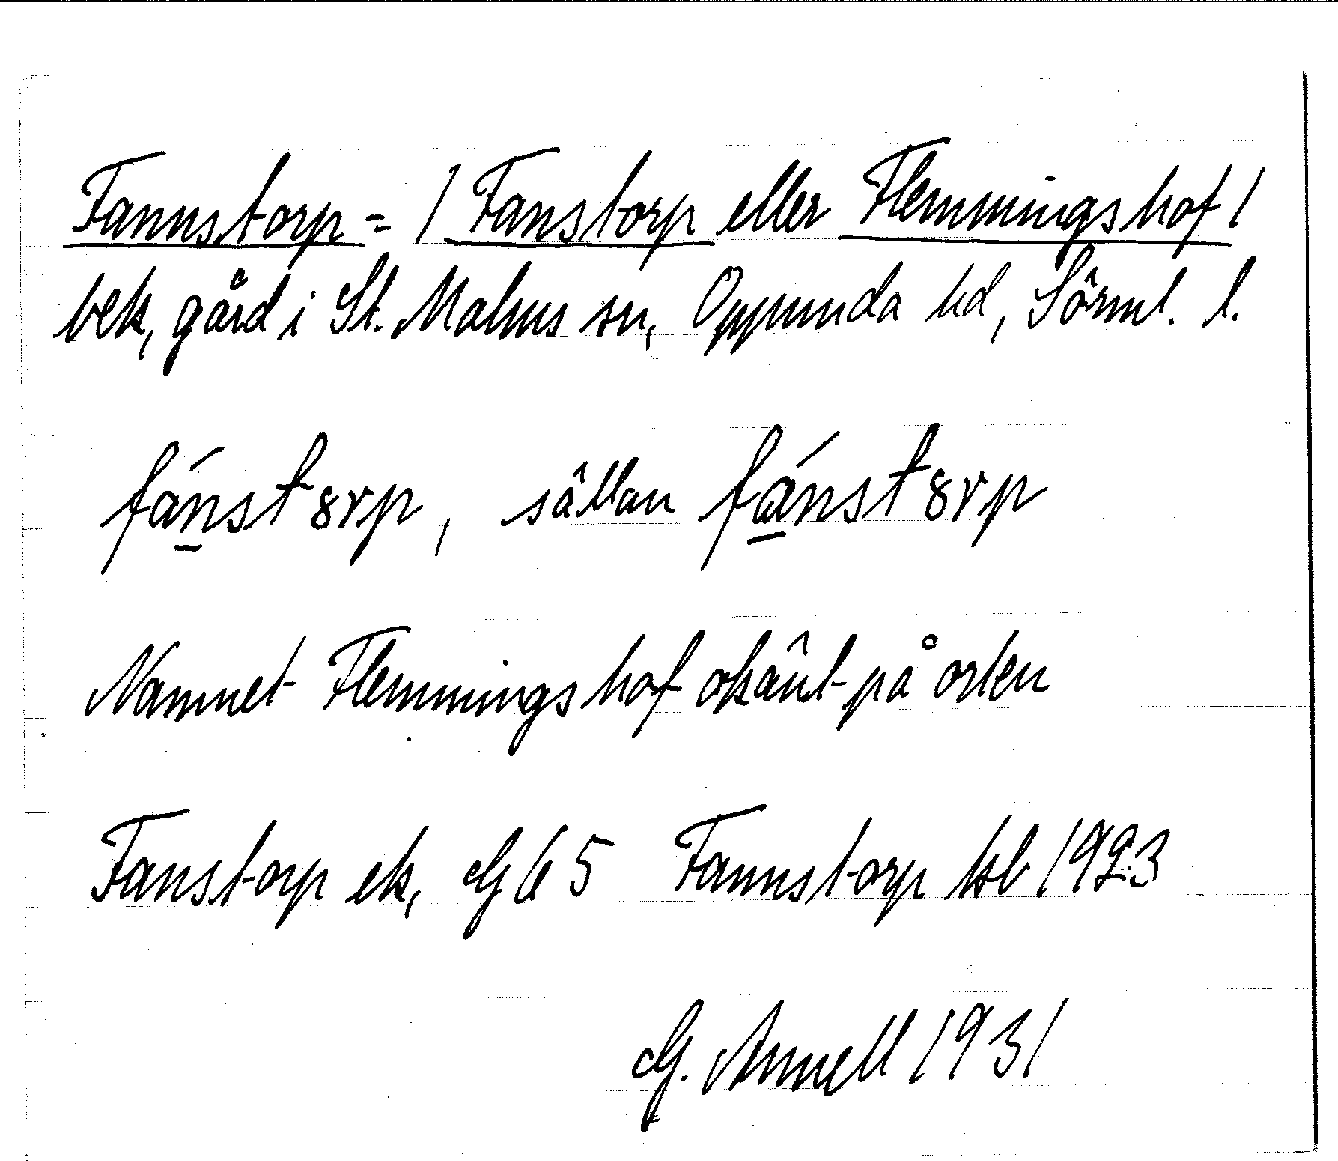 Fannstorp = / Fanstorp eller Flemmingshof /
bek, gård i St. Malms sn, Oppunda hd, Sörml. l.
fánst8rp, sällan fánst8rp
Namnet Flemmingshof okänt på orten
Fanstorp ek, G 65 Fannstorp kb 1923
G. Annell 1931